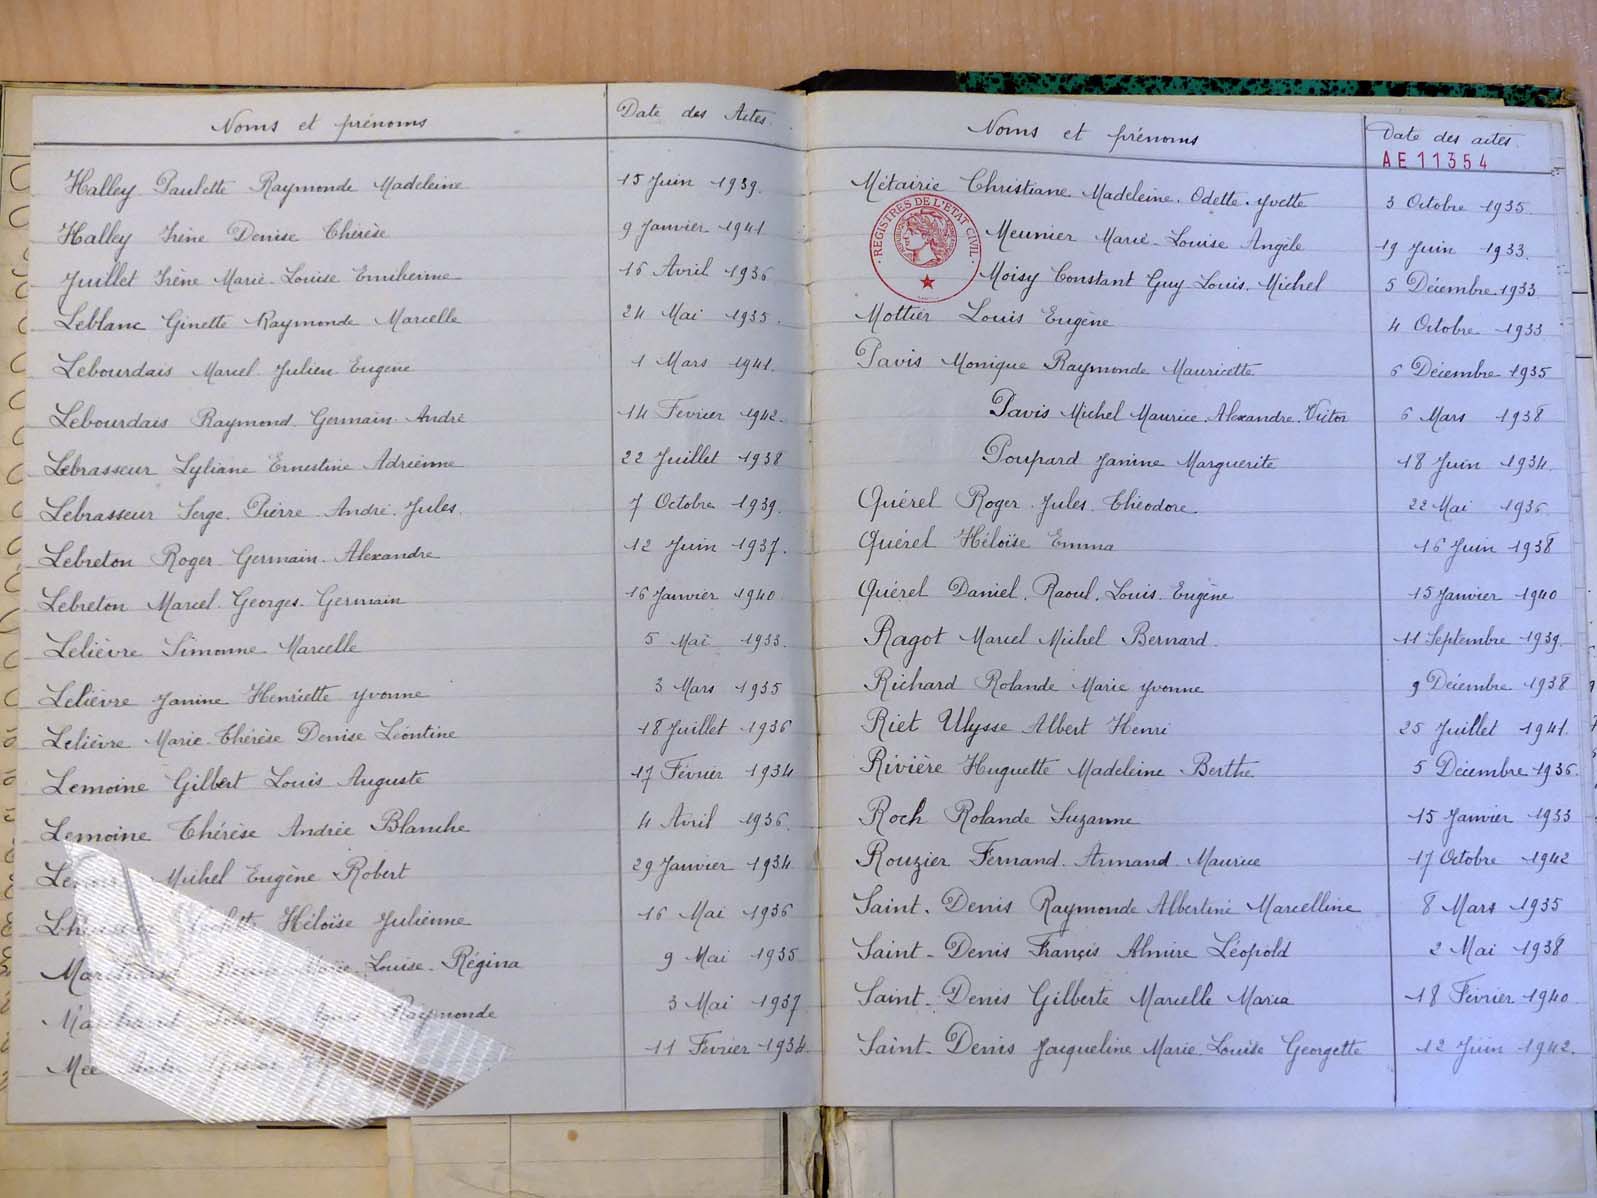 Noms et prénoms
Date des Actes.
Halley Paulette Raymonde Madeleine 15 Juin 1939.
Halley Irène Denise Thérèse 9 Janvier 1941
Juillet Irène Marie-Louise Emilienne 16 Avril 1936
Leblanc Ginette Raymonde Marcelle 24 Mai 1935.
Lebourdais Marcel Julien Eugène 1 Mars 1941.
Lebourdais Raymond Germain André 14 Février 1942.
Lebrasseur Lyliane Ernestine Adrienne 22 Juillet 1938
Lebrasseur Serge Pierre André Jules. 7 Octobre 1939.
Lebreton Roger Germain Alexandre 12 Juin 1937.
Lebreton Marcel Georges Germain 16 Janvier 1940
Lelièvre Simonne Marcelle 5 Mai 1933.
Lelièvre Janine Henriette Yvonne 3 Mars 1935
Lelièvre Marie-Thérèse Denise Léontine 18 Juillet 1936
Lemoine Gilbert Louis Auguste 17 Février 1934
Lemoine Thérèse Andrée Blanche 4 Avril 1936.
Michel Eugène Robert 29 Janvier 1934.
Héloïse Julienne 16 Mai 1936
Louise-Régina 9 Mai 1935
Raymonde 3 Mai 1937
11 Février 1934.
Noms et prénoms
Date des actes.
AE 11354
Métairie Christiane Madeleine. Odette. Yvette 3 Octobre 1935.
REGISTRES DE L'ETAT CIVIL
Meunier Marie-Louise Angèle 19 Juin 1933.
Moisy Constant Guy Louis. Michel 5 Décembre 1933
Mottier Louis Eugène 4 Octobre 1933
Pavis Monique Raymonde Mauricette 6 Décembre 1935
Pavis Michel Maurice. Alexandre. Victor 6 Mars 1938
Poupard Janine Marguerite 18 Juin 1934.
Quérel Roger Jules Théodore. 22 Mai 1936
Quérel Héloïse Emma 16 Juin 1938
Quérel Daniel. Raoul. Louis. Eugène 15 Janvier 1940
Ragot Marcel Michel Bernard. 11 Septembre 1939.
Richard Rolande Marie Yvonne 9 Décembre 1938
Riet Ulysse Albert Henri 25 Juillet 1941.
Rivière Huguette Madeleine Berthe 5 Décembre 1936.
Roch Rolande Suzanne 15 Janvier 1933
Rouzier Fernand. Armand Maurice 17 Octobre 1942
Saint-Denis Raymonde Albertine Marcelline 8 Mars 1935
Saint-Denis Françis Almire Léopold 2 Mai 1938
Saint-Denis Gilberte Marcelle Maria 18 Février 1940
Saint-Denis Jacqueline Marie-Louise Georgette 12 Juin 1942.